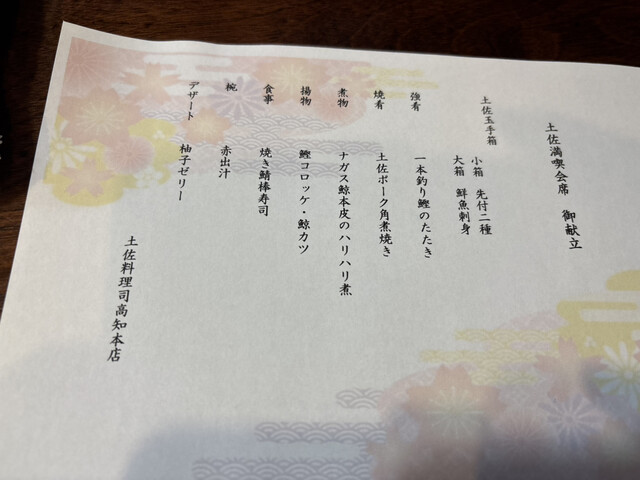 土佐満喫会席　御献立
土佐玉手箱
小箱　先付二種
大箱　鮮魚刺身
強肴　一本釣り鰹のたたき
焼肴　土佐ポーク角煮焼き
煮物　ナガス鯨本皮のハリハリ煮
揚物　鰹コロッケ・鯨カツ
食事　焼き鯖棒寿司
椀　赤出汁
デザート　柚子ゼリー
土佐料理司高知本店